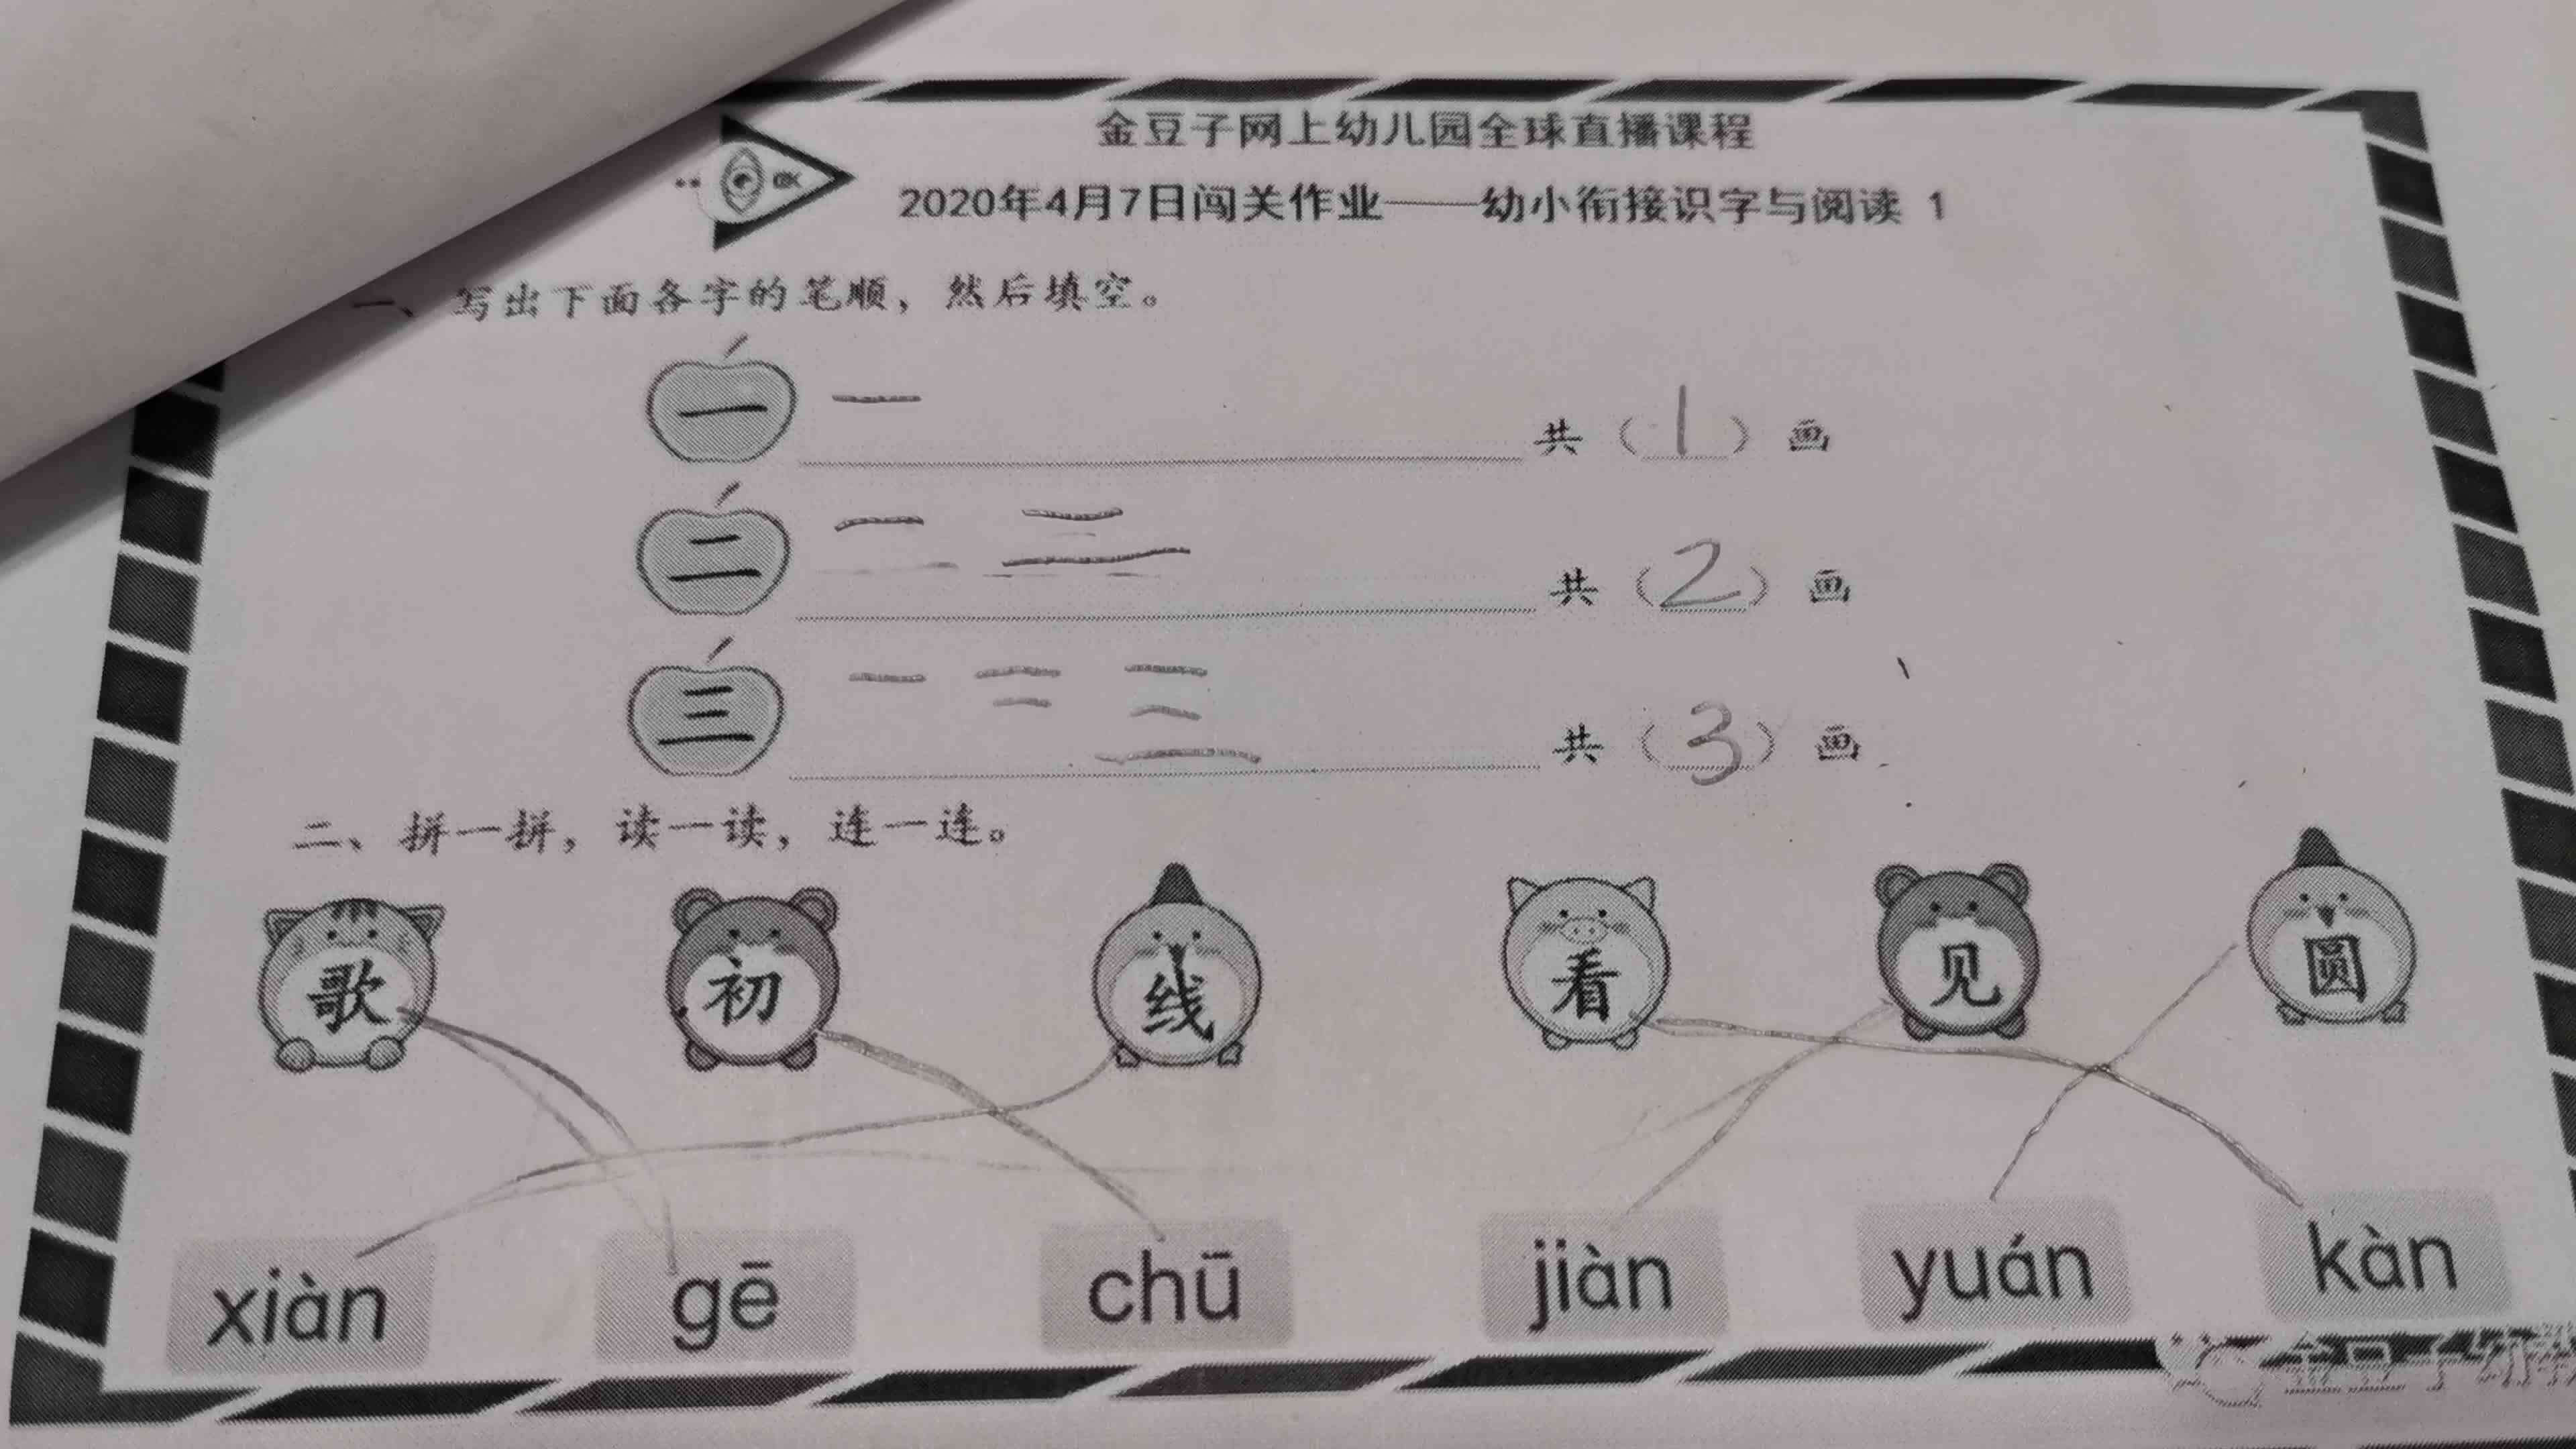 金豆子网上幼儿园全球直播课程
2020年4月7日闯关作业——幼小衔接识字与阅读 1
一、写出下面各字的笔顺，然后填空。
一 一 共（1）画
二 一 二 共（2）画
三 一 二 三 共（3）画
二、拼一拼，读一读，连一连。
歌 初 线 看 见 圆
xiàn gē chū jiàn yuán kàn
金豆子幼教